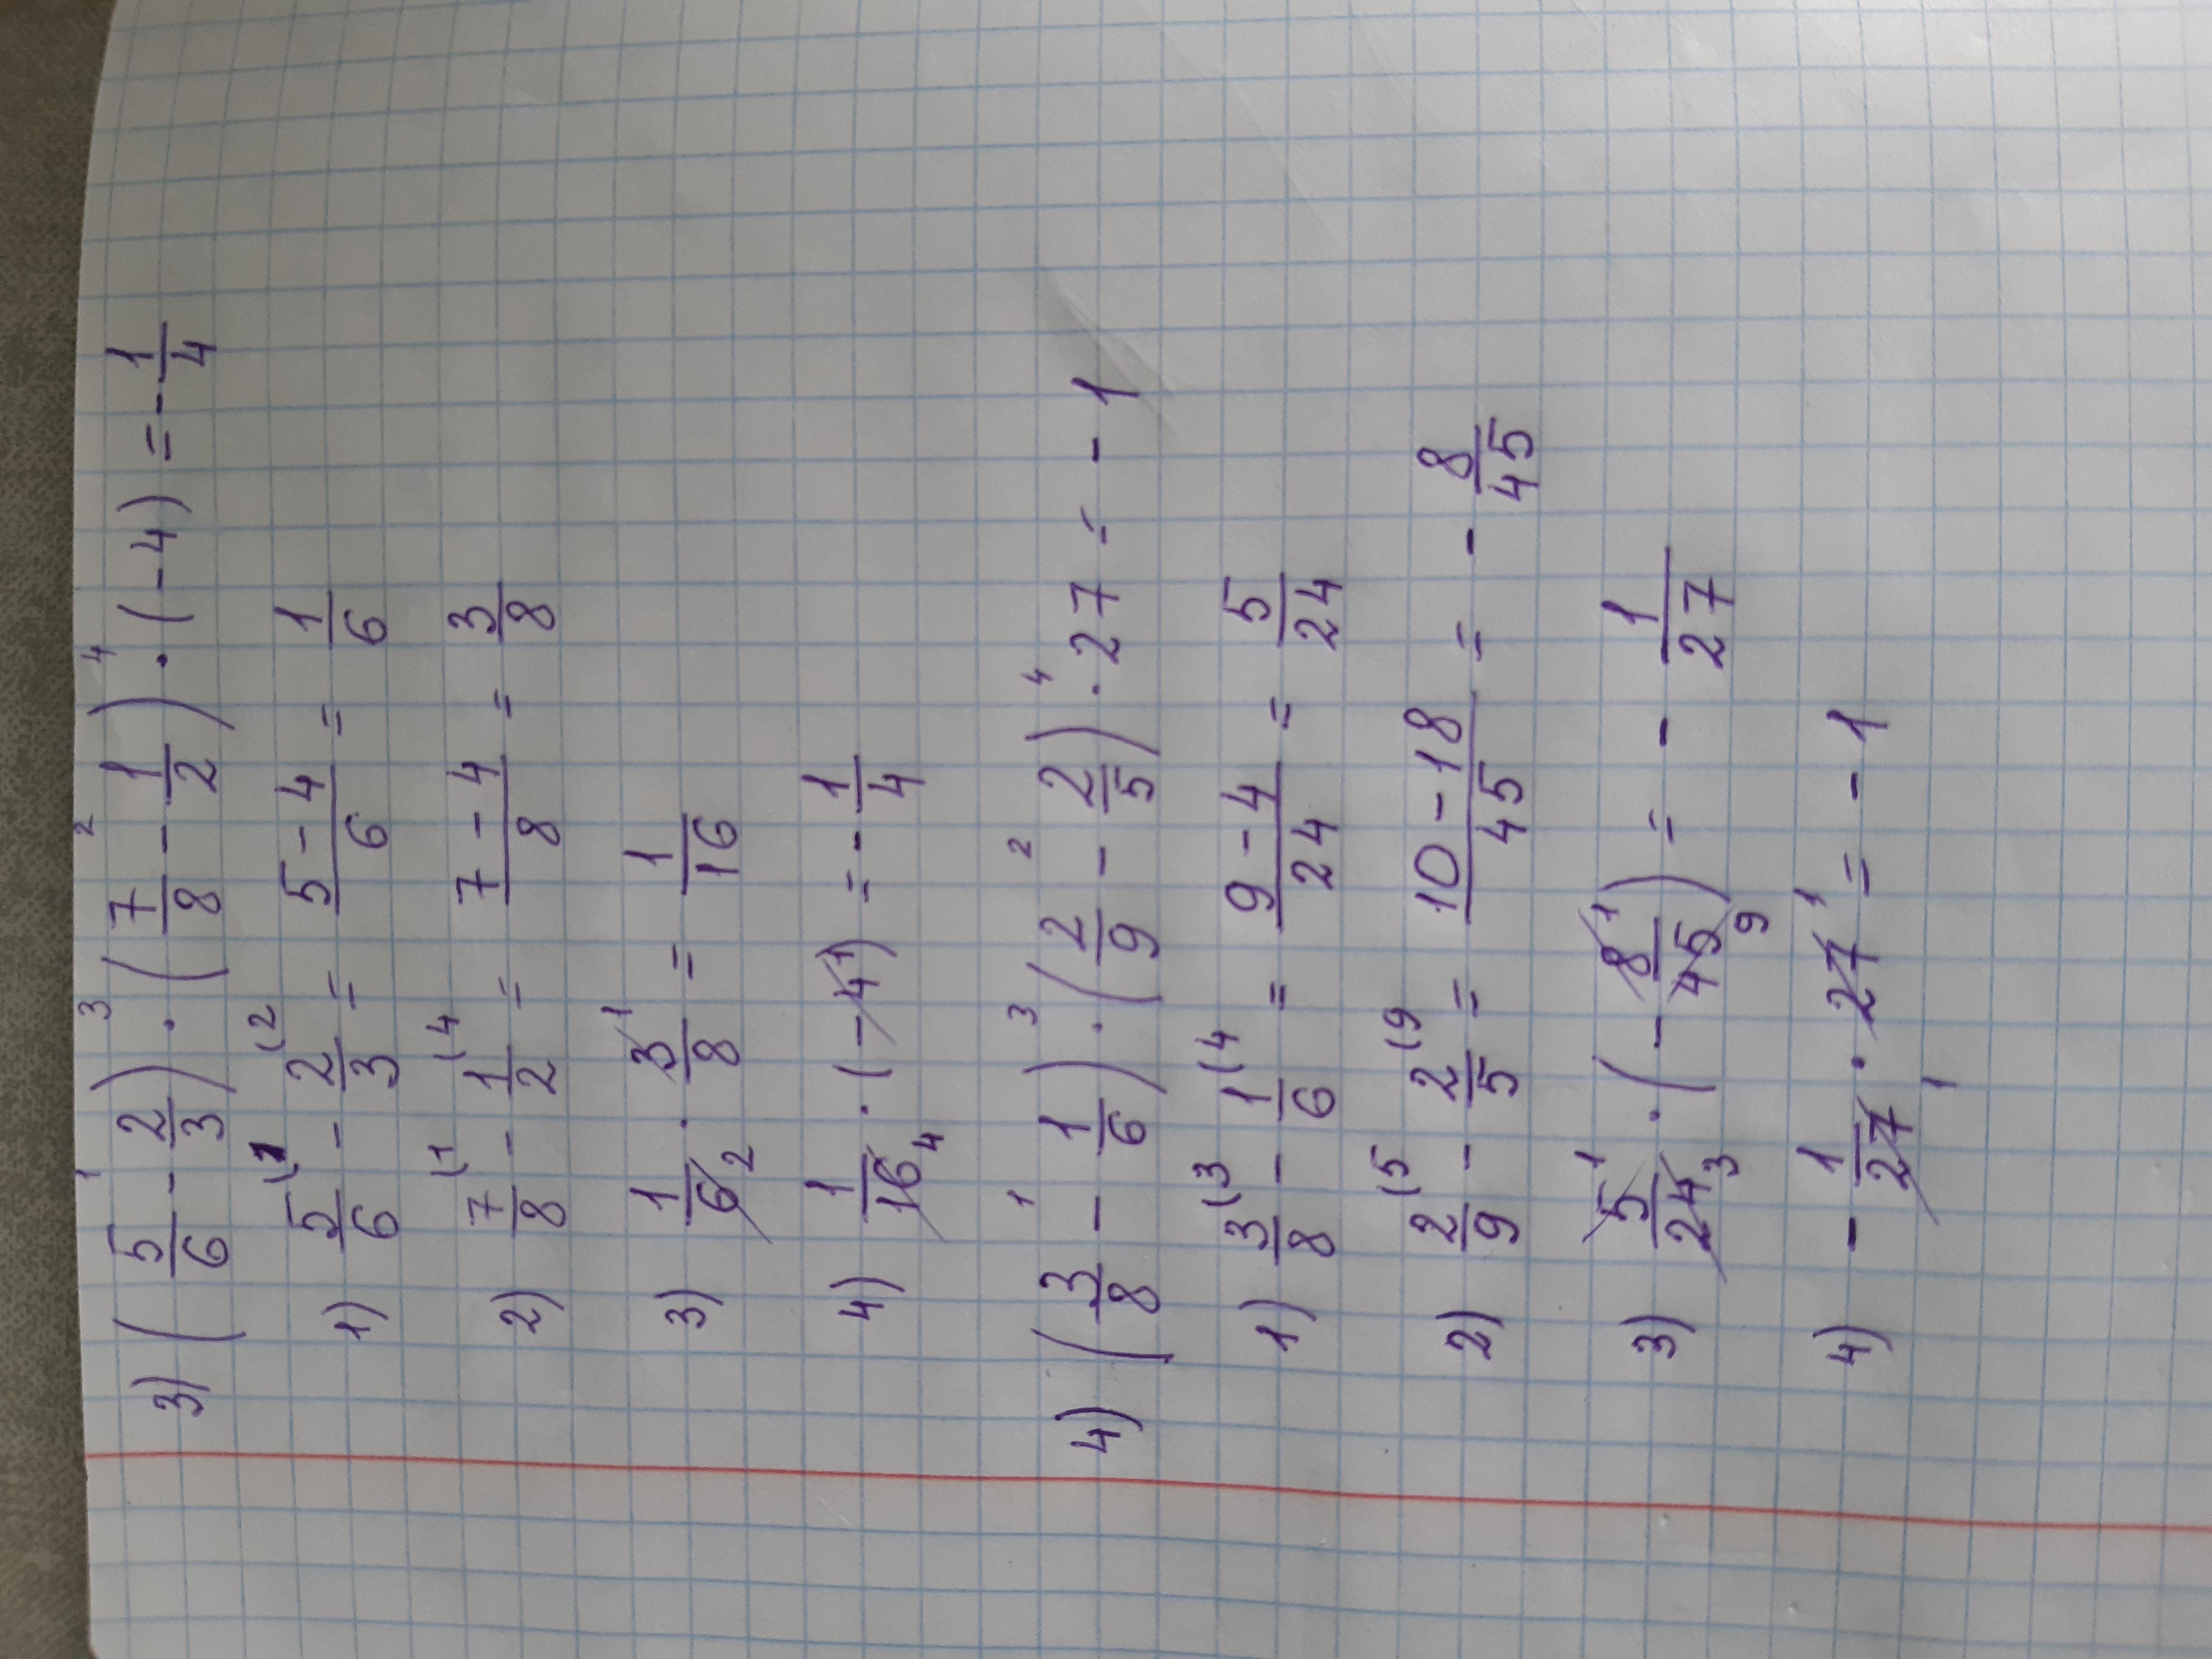 3) (5/6 - 2/3) · (7/8 - 1/2) · (-4) = -1/4
1) 5/6 - 2/3 = 5-4/6 = 1/6
2) 7/8 - 1/2 = 7-4/8 = 3/8
3) 1/6 · 3/8 = 1/16
4) 1/16 · (-4) = -1/4
4) (3/8 - 1/6) · (2/9 - 2/5) · 27 = -1
1) 3/8 - 1/6 = 9-4/24 = 5/24
2) 2/9 - 2/5 = 10-18/45 = -8/45
3) 5/24 · (-8/45) = -1/27
4) -1/27 · 27 = -1